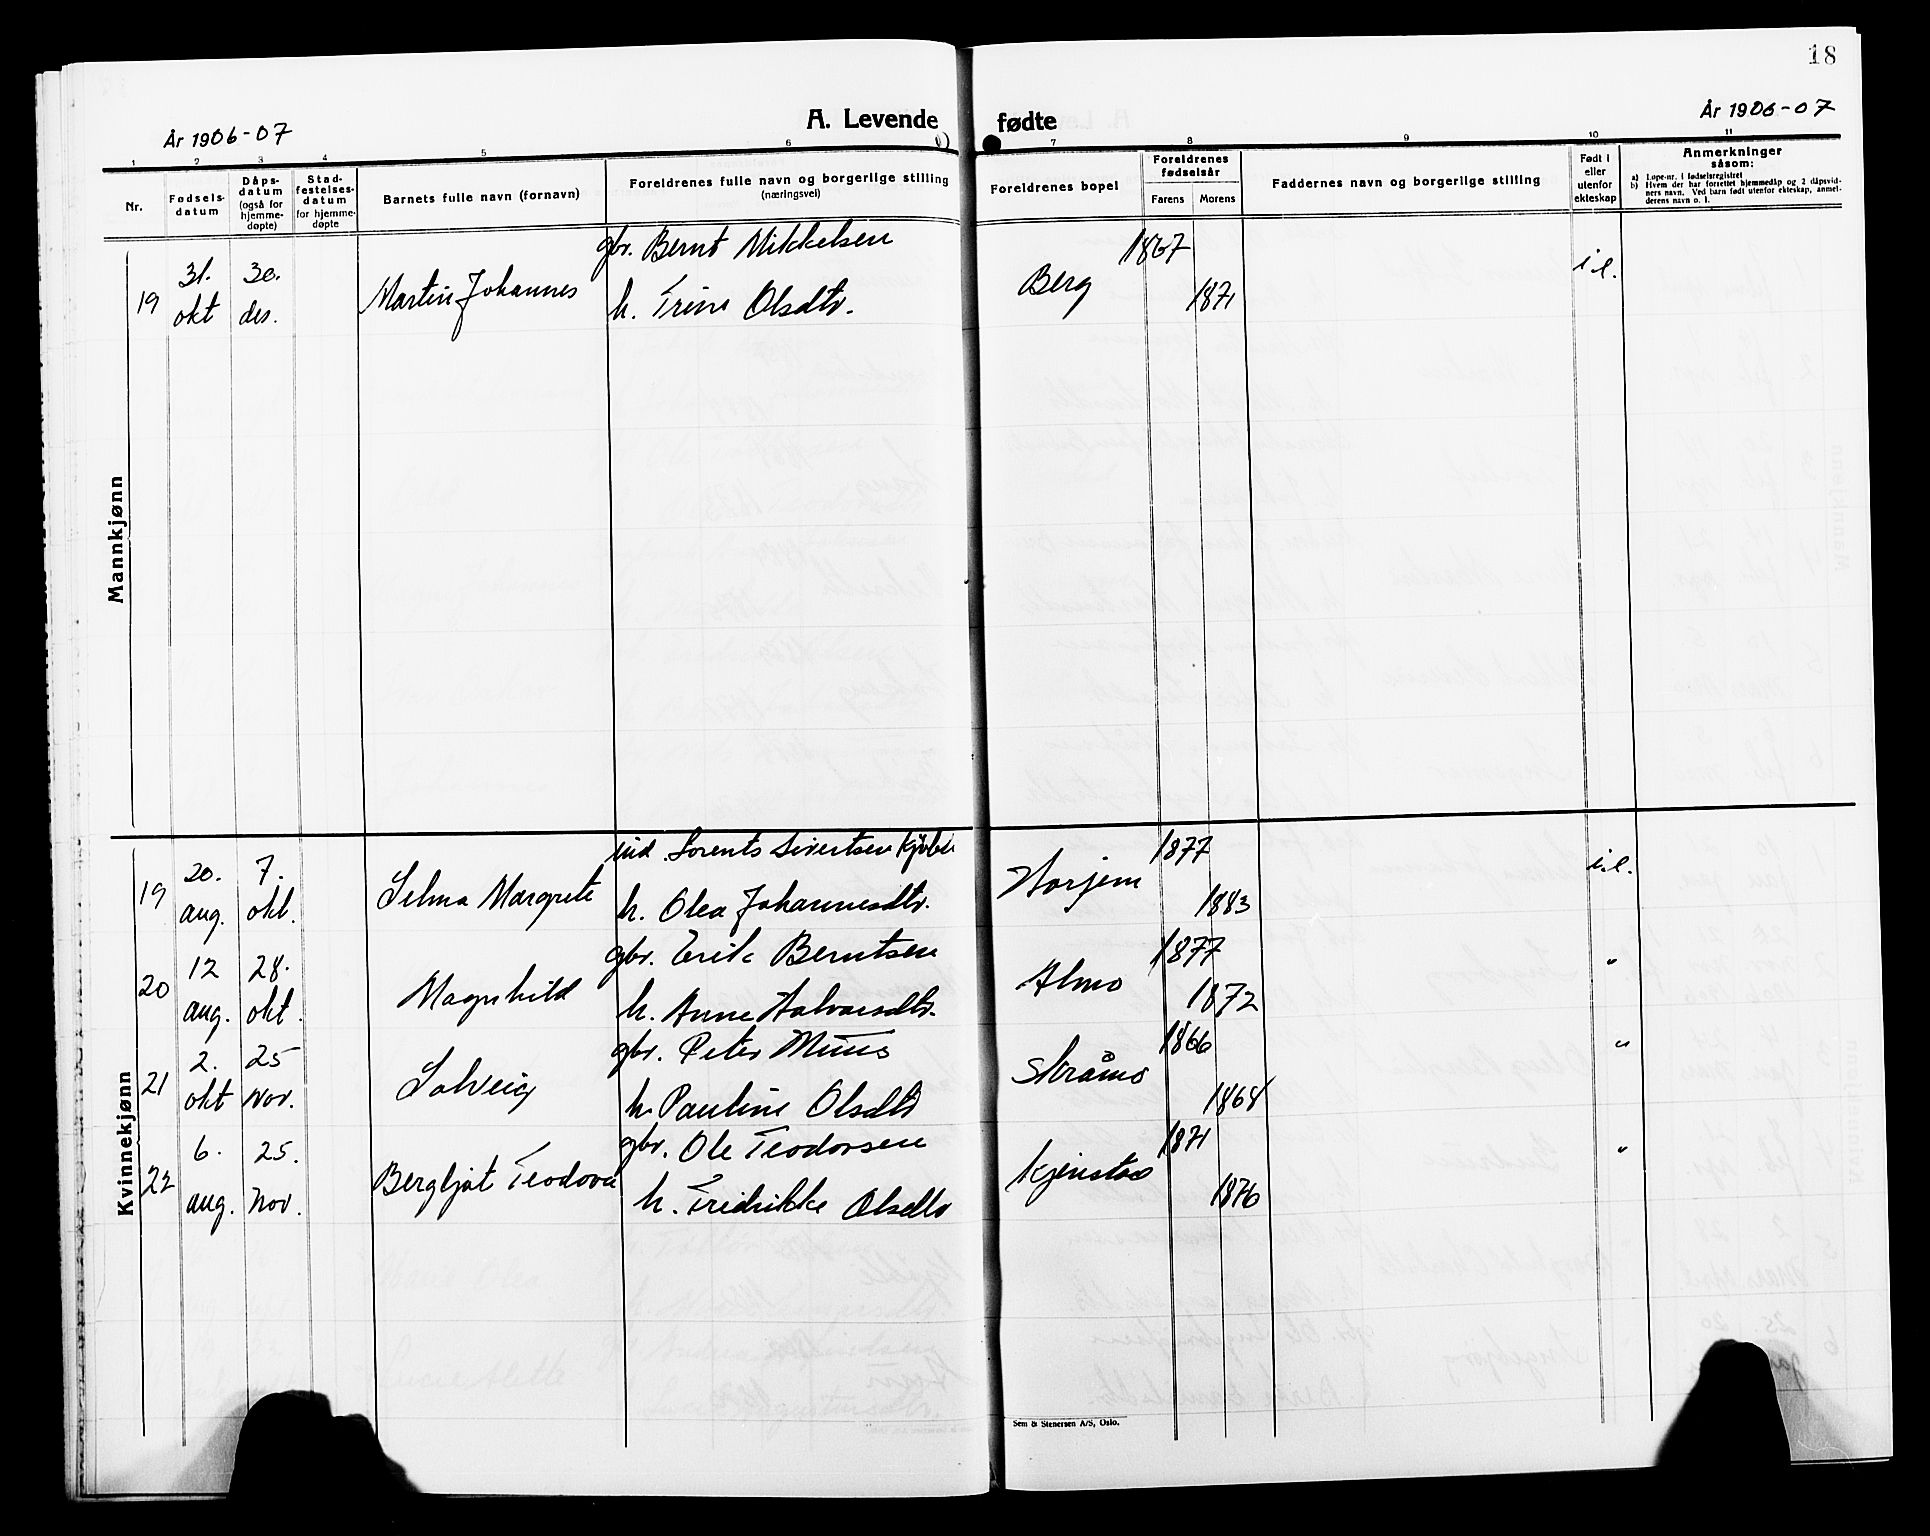 18
A. Levende fødte
År 1906-07
År 1906-07
1 2 3 4 5 6 7 8 9 10 11
Nr.
Fødsels-
datum
Dåps-
datum
(også for
hjemme-
døpte)
Stad-
festelses-
datum
for hjemme-
døpte
Barnets fulle navn (fornavn)
Foreldrenes fulle navn og borgerlige stilling
(næringsvei)
Foreldrenes bopel
Foreldrenes
fødselsår
Farens Morens
Faddernes navn og borgerlige stilling
Født i
eller
utenfor
ekteskap
Anmerkninger
såsom:
a) Løpe-nr. i fødselsregistret
b) Hvem der har forrettet hjemmedåp og 2 dåpsvid-
ners navn. Ved barn født utenfor ekteskap, anmel-
derens navn o. l.
Mannkjønn
gbr. Bernt Mikkelsen 1867
31. 30. Berg i.e.
19 Martin Johannes
okt des. h. Trine Olsdtr. 1871
Kvinnekjønn
ind. Lorents Sivertsen 1877
20. 7. Horjem i.e.
19 Selma Margrete
aug. okt. h. Olea Johannesdtr. 1883
gbr. Erik Berntsen 1877
12 28. Almo "
20 Magnhild
aug. okt. h. Anne Halvarsdtr. 1872
gbr. Peter Muus 1866
2. 25 Skråmo "
21 Solveig
okt Nov. h. Pauline Olsdtr 1868
gbr. Ole Teodorsen 1871
6. 25. Kjenstad "
22 Bergljot Teodora
aug. Nov. h. Fredrikke Olsdtr 1876
Sem & Stenersen A/S, Oslo.